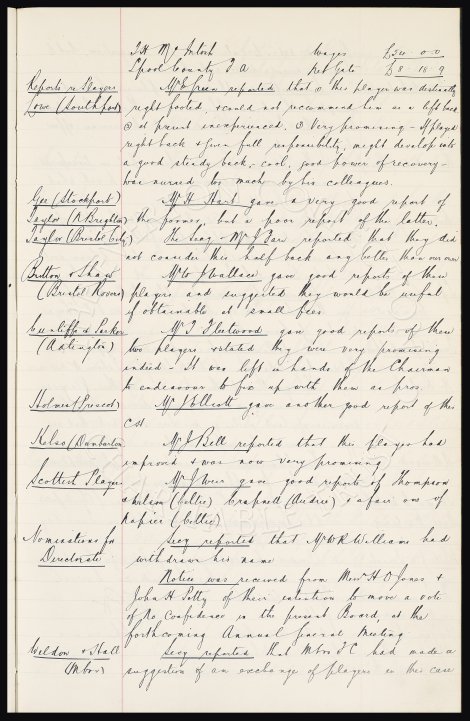 T H McIntosh Wages £50 - 0 - 0
Lpool County F A Net Gate £8 - 18 - 9
Reports re Players Mr E Green reported that ① this player was distinctly
Lowe (Southport) right footed, & could not recommend him as a left back
② at present inexperienced. ③ Very promising - If played
right back & given full responsibility, might develop into
a good steady back, cool, good power of recovery -
was nursed too much by his colleagues.
Gee (Stockport) Mr H Hart gave a very good report of
Taylor (N Brighton) the former, but a poor report of the latter.
Taylor (Bristol City) The Secy & Mr J Dare reported that they did
not consider this half back any better than our own
Britton & Shaw Mr W J Wallace gave good reports of these
(Bristol Rovers) players and suggested they would be useful
if obtainable at small fees.
Cunliffe & Parker Mr T Fleetwood gave good reports of these
(Adlington) two players & stated they were very promising
indeed. It was left in hands of the Chairman
to endeavour to fix up with them as pros.
Holmes (Prescot) Mr J Elliott gave another good report of this
c.f.
Kelso (Dumbarton) Mr J Bell reported that this player had
improved & was now very promising
Scottish Players Mr J Weir gave good reports of Thompson
& Wilson (Celtic) Crapnell (Airdrie) & a fair one of
Napier (Celtic)
Nominations for Secy reported that Mr W R Williams had
Directorate withdrawn his name
Notice was received from Messrs H O Jones &
John H Selby of their intention to move a vote
of No Confidence in the present Board, at the
forthcoming Annual General Meeting
Weldon & Hall Secy reported that Mbro F C had made a
(Mbro) suggestion of an exchange of players in this case